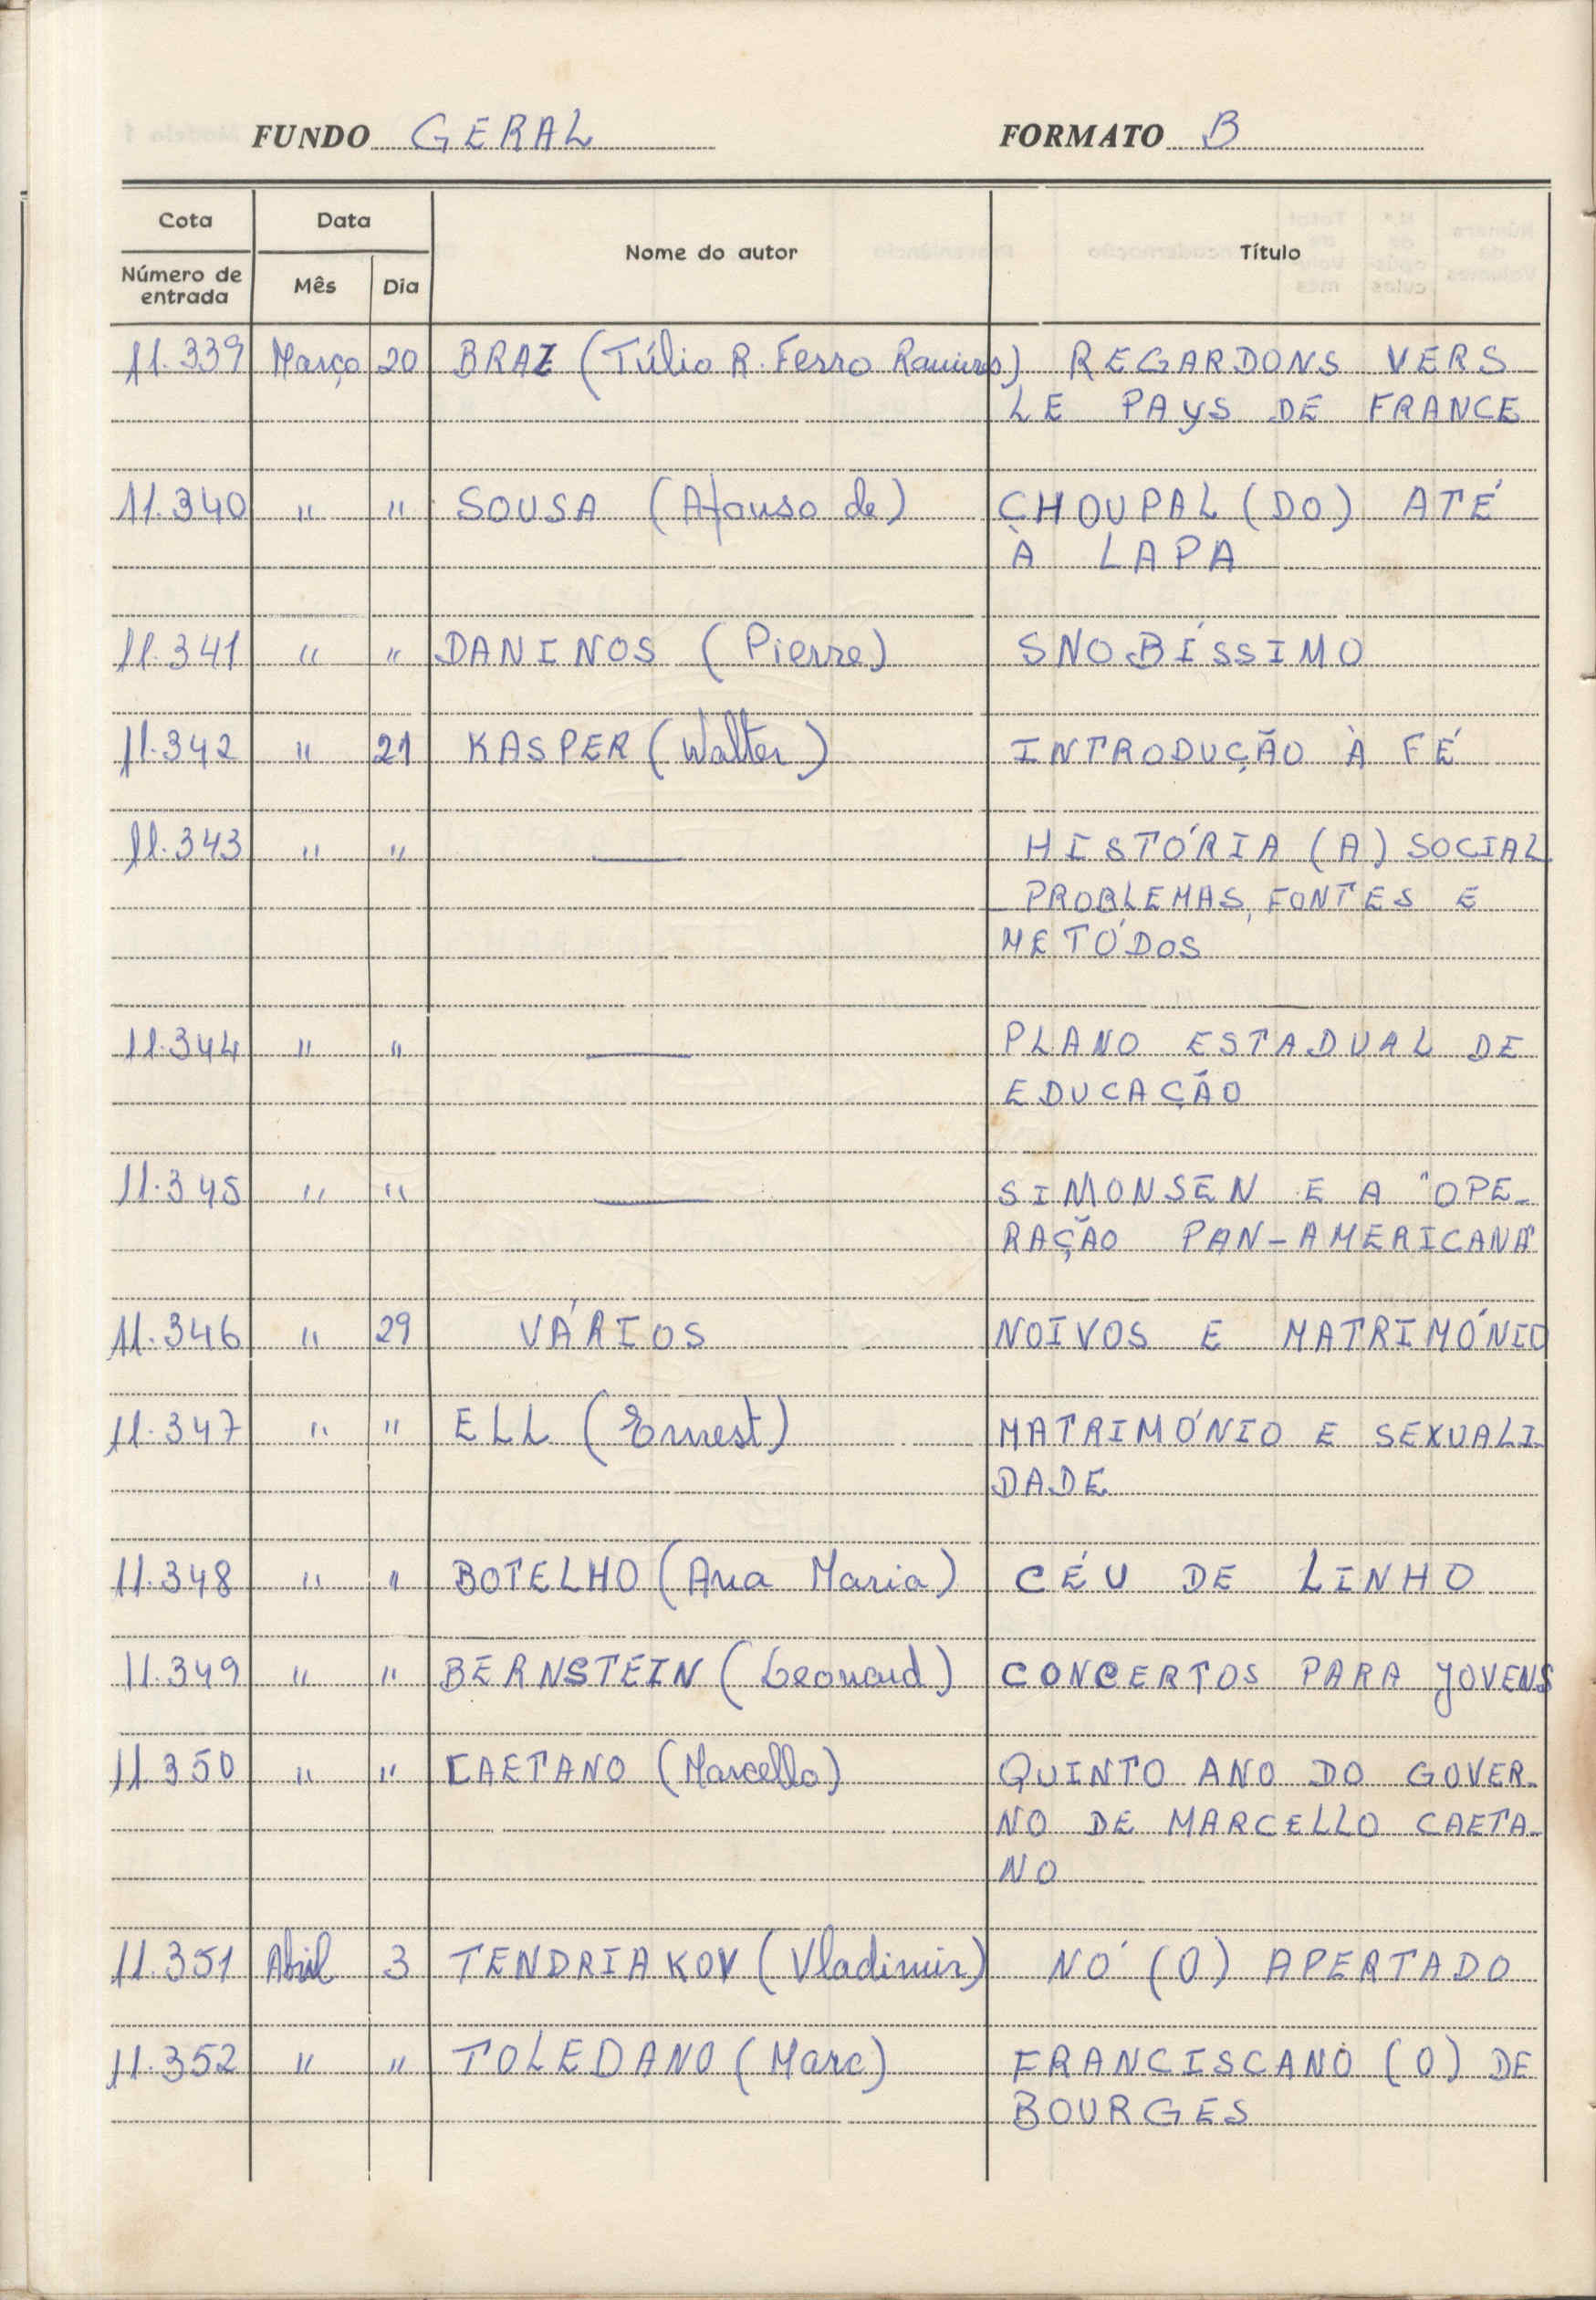 FUNDO GERAL FORMATO B
Cota Data Nome do autor Título
Número de entrada Mês Dia
11.339 Março 20 BRAZ (Túlio R. Ferro Ramires) REGARDONS VERS
LE PAYS DE FRANCE
11.340 " " SOUSA (Afonso de) CHOUPAL (DO) ATÉ
À LAPA
11.341 " " DANINOS (Pierre) SNOBÍSSIMO
11.342 " 21 KASPER (Walter) INTRODUÇÃO À FÉ
11.343 " " — HISTÓRIA (A) SOCIAL
PROBLEMAS, FONTES E
METÓDOS
11.344 " " — PLANO ESTADUAL DE
EDUCAÇÃO
11.345 " " — SIMONSEN E A "OPE-
RAÇÃO PAN-AMERICANA"
11.346 " 29 VÁRIOS NOIVOS E MATRIMÓNIO
11.347 " " ELL (Ernest) MATRIMÓNIO E SEXUALI-
DADE
11.348 " " BOTELHO (Ana Maria) CÉU DE LINHO
11.349 " " BERNSTEIN (Leonard) CONCERTOS PARA JOVENS
11.350 " " CAETANO (Marcello) QUINTO ANO DO GOVER-
NO DE MARCELLO CAETA-
NO
11.351 Abril 3 TENDRIAKOV (Vladimir) NÓ (O) APERTADO
11.352 " " TOLEDANO (Marc) FRANCISCANO (O) DE
BOURGES